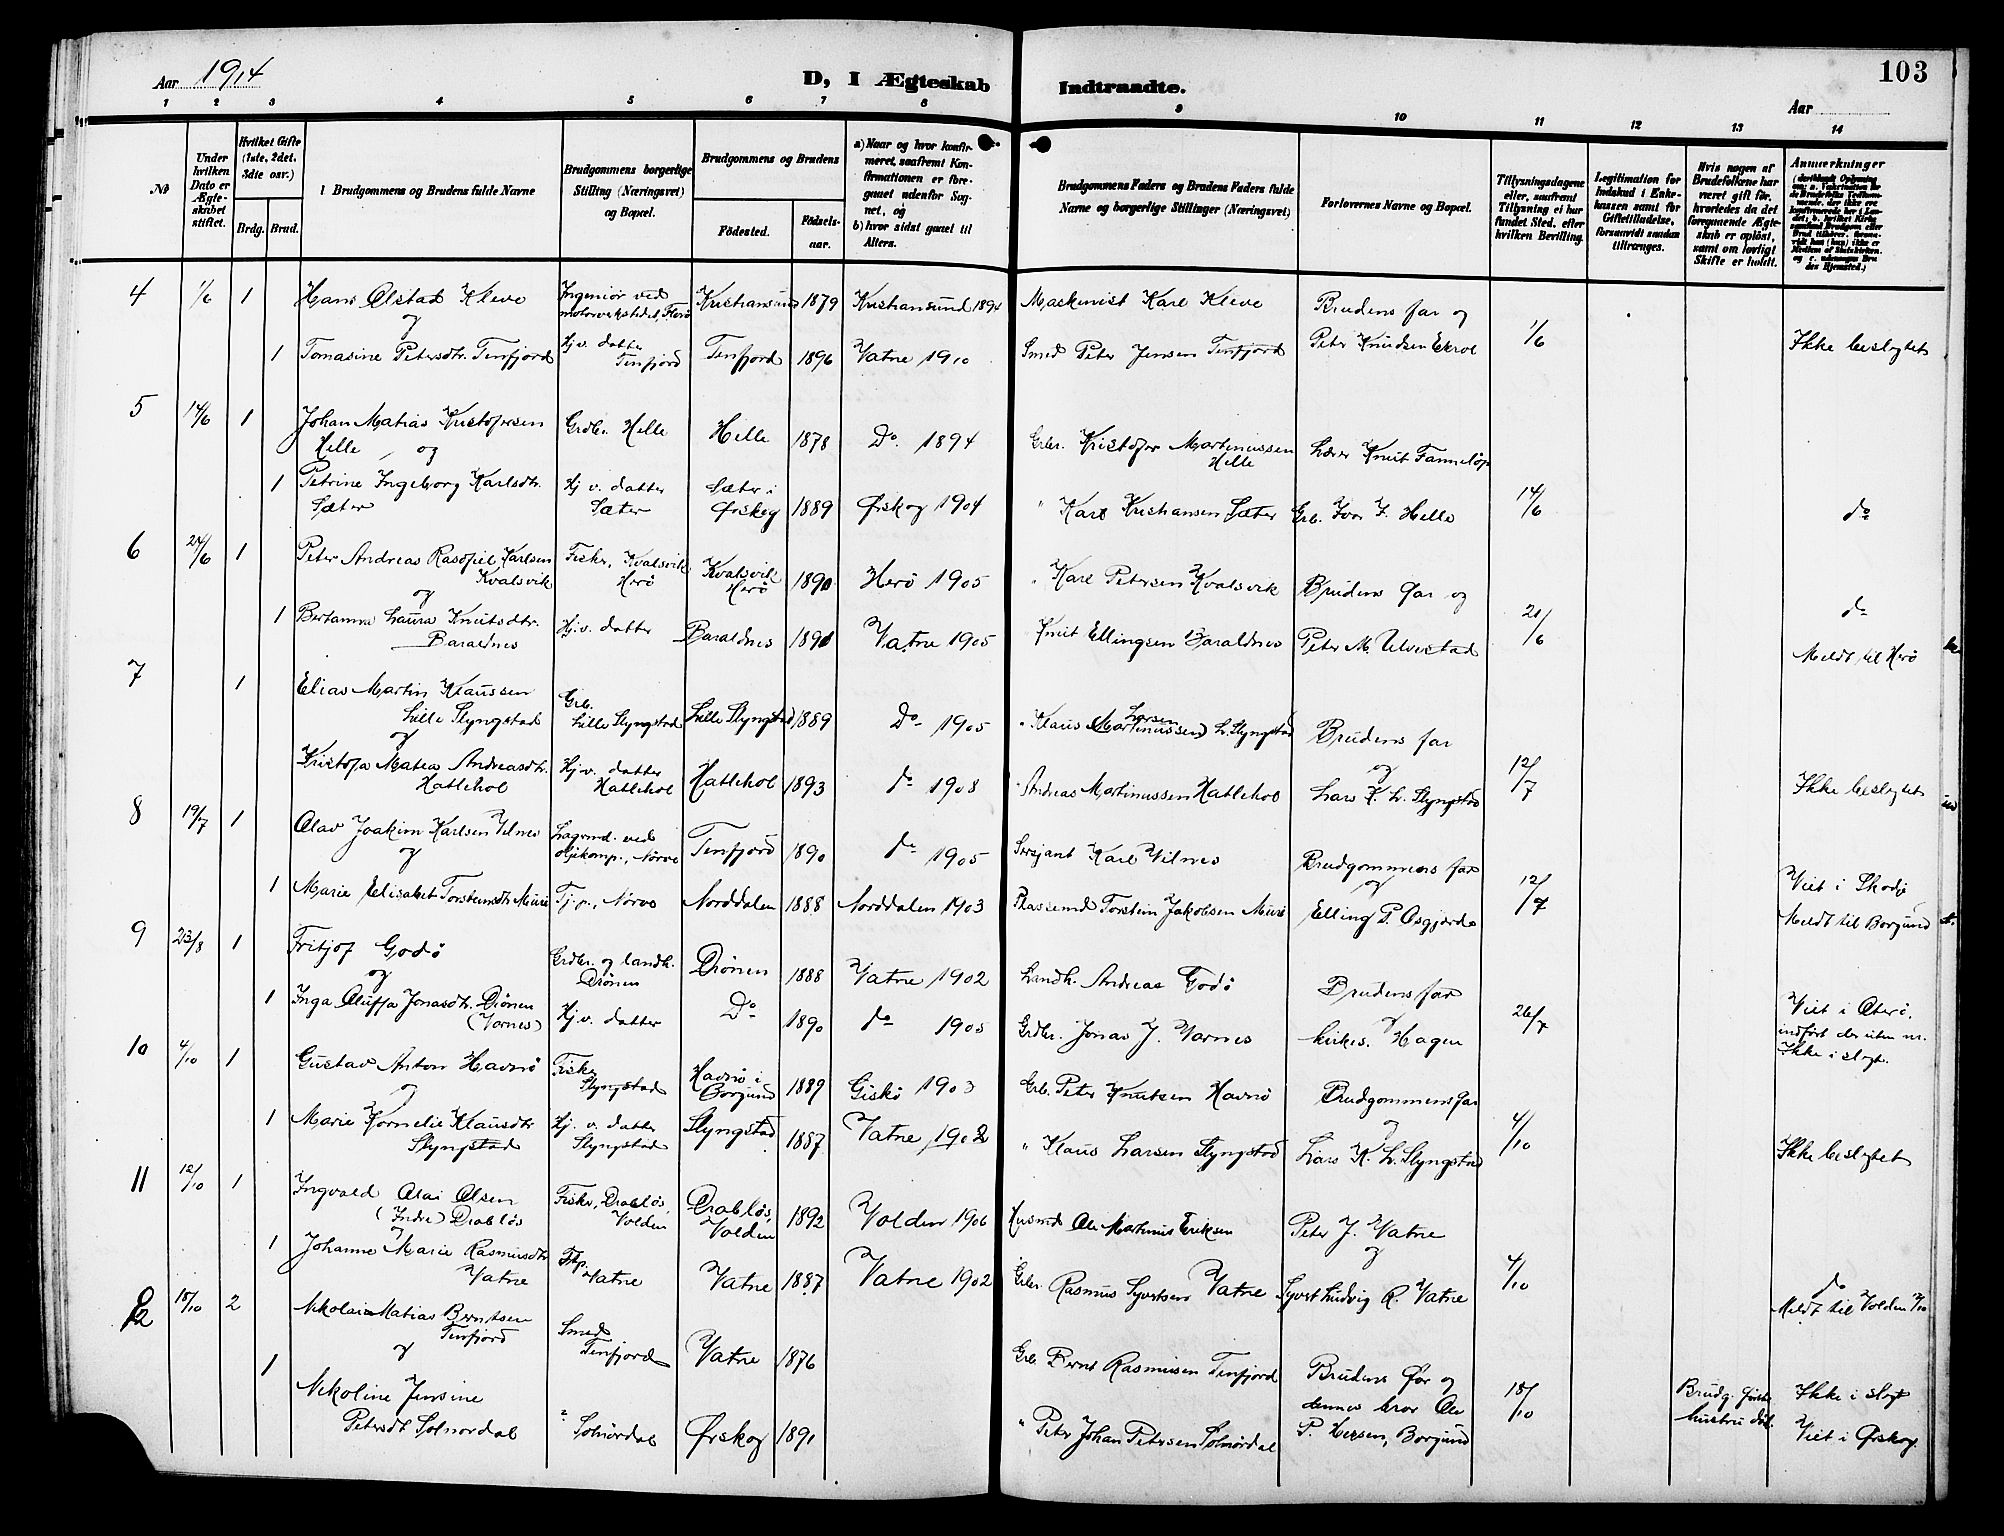 Aar 1914
D, I Ægteskab Indtraadte.
103
Aar
1 2 3 4 5 6 7 8 9 10 11 12 13 14
No
Under hvilken Dato er Ægteskabet stiftet.
Hvilket Gifte (1ste, 2det, 3die osv.)
Brdg. Brud.
Brudgommens og Brudens fulde Navne
Brudgommens borgerlige Stilling (Næringsvei) og Bopæl.
Brudgommens og Brudens
Födested.
Födselsaar.
a) Naar og hvor konfirmeret, saafremt Konfirmationen er foregaaet udenfor Sognet, og
b) hvor sidst gaaet til Alters.
Brudgommens Faders og Brudens Faders fulde Navne og borgerlige Stillinger (Næringsvei)
Forlovernes Navne og Bopæl.
Tillysningsdagene eller, saafremt Tillysning ei har fundet Sted, efter hvilken Bevilling.
Legitimation for Indskud i Enkekassen samt for Giftetilladelse, forsaavidt saadan tiltrænges.
Hvis nogen af Brudefolkene har været gift för, hvorledes da det foregaaende Ægteskab er oplöst, samt om lovligt Skifte er holdt.
Anmærkninger
4 1/6 1 Hans Olstad Kleve Ingeniør ved motorverkstedet, Herø Kristiansund 1879 Kristiansund 1894 Maskinist Karl Kleve Brudens far og
og
1 Tomasine Petersdtr. Tenfjord Hj. v. datter Tenfjord Tenfjord 1896 Vatne 1910 Smed Peter Jensen Tenfjord Peter Knudsen Ekrol 1/6 Ikke beslegtet
5 14/6 1 Johan Matias Kristofersen Grdbr. Helle Helle 1878 Do. 1894 Grbr. Kristofer Martinussen Helle Lærer Knut Fanneløp
Helle, og
1 Petrine Ingeborg Karlsdtr. Sæter Hj. v. datter Sæter Sæter i Ørskog 1889 Ørskog 1904 " Karl Kristiansen Sæter Grb. Ivar I. Helle 14/6 do
6 21/6 1 Peter Andreas Rasofiel Karlsen Kvalsvik Fisker, Kvalsvik Herø Kvalsvik Herø 1890 Herø 1905 " Karl Petersen Kvalsvik Brudens far og
og
1 Bertanna Laura Knutsdtr. Baraldnes Hj. v. datter Baraldnes 1890 Vatne 1905 Knut Ellingsen Baraldnes Peter M. Ulvestad 21/6 do
Meldt til Herø
7 1 Elias Martin Klaussen Lille Slyngstad Grb. Lille Slyngstad Lille Slyngstad 1889 Do 1905 " Klaus (Martinussen) Larsen L. Slyngstad Brudens far
og
Kristofa Matea Andreasdtr. Hatlehol Hj. v. datter Hatlehol Hatlehol 1893 do 1908 " Andreas Martinussen Hatlehol og Lars K. L. Slyngstad 12/7 Ikke beslegtet
8 19/7 1 Olav Joakim Karlsen Vilnes Lagermd. ved oljekomp., Nørve Tenfjord 1890 do 1905 Sersjant Karl Vilnes Brudgommens far
og
1 Marie Elisabet Torsteinsdtr Muri Tj.p., Nørve Norddalen 1888 Norddalen 1903 Plassemd Torstein Jakobsen Muri og Elling P. Osgjerde 12/7 Viet i Skodje
Meldt til Borgund
9 23/8 1 Fritjof Godø Grdbr. og landh. Drønen Drönen 1888 Vatne 1902 Landh. Andreas Godø Brudens far
og
1 Inga Oluffa Jonasdtr. Drönen (Vornes) Hj. v. datter Do 1890 do 1905 Grdbr. Jonas J. Vornes og kirkes. Hagen 26/7 Viet i Oterø, indført der uten nr. Ikke i slegt.
10 4/10 1 Gustav Anton Havnø Fisker Slyngstad Havnø i Borgund 1889 Giskø 1903 Grb. Peter Knutsen Havnø Brudgommens far
og
1 Marie Kornelie Klausdtr Slyngstad Hj. v. datter Slyngstad Slyngstad 1887 Vatne 1902 " Klaus Larsen Slyngstad og Lars K. L. Slyngstad 4/10 Ikke beslegtet
11 12/10 1 Ingvald Olai Olsen (Indre) Drabløs Fisker, Drabløs, Volden Drabløs, Volden 1892 Volden 1906 Husmd Ole Martinus Eriksen Peter J. Vatne
1 Johanne Marie Rasmusdtr Vatne Tjp. Vatne Vatne 1887 Vatne 1902 Grbr. Rasmus Syvertsen Vatne og Syvert Ludvig R. Vatne 4/10 do
Meldt til Volden
12 18/10 2 Nikolai Matias Berntsen Tenfjord Smed Tenfjord Vatne 1876 Grb. Bernt Rasmusen Tenfjord Brudens far og
og
1 Nikoline Jensine Petersdt Solnordal Solnørdal Ørskog 1891 " Peter Johan Petersen Solnørdal dennes bror Ole P. Hessen, Borgund 18/10 Brudg. første hustru død. Ikke i slegt
Viet i Ørskog.